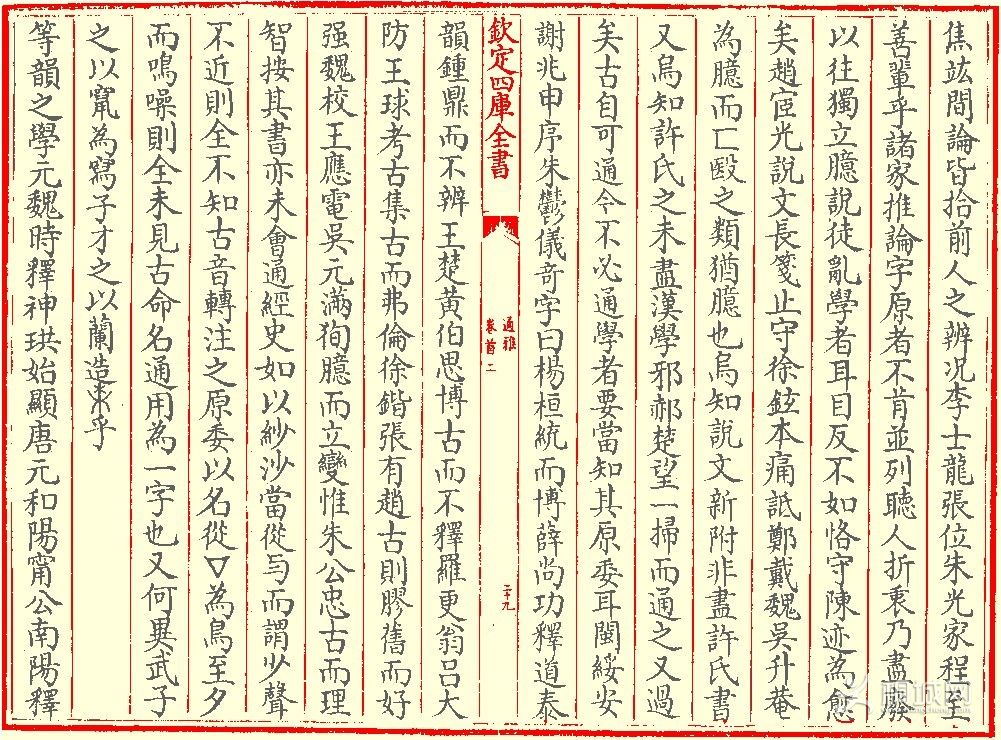 焦竑間論皆拾前人之辨况李士龍張位朱光家程至
善輩乎諸家推論字原者不肯並列聽人折衷乃盡廢
以往獨立臆說徒亂學者耳目反不如恪守陳迹為愈
矣趙宧光說文長箋止守徐鉉本痛詆鄭戴魏吳升菴
為臆而匸毉之類猶臆也烏知說文新附非盡許氏書
又烏知許氏之未盡漢學邪郝楚望一掃而通之又過
矣古自可通今不必通學者要當知其原委耳閩綏安
謝兆申序朱鬱儀竒字曰楊桓統而博薛尚功釋道泰
欽定四庫全書
通雅
卷首二
二十九
韻鍾鼎而不辨王楚黃伯思博古而不釋羅更翁吕大
防王球考古集古而弗倫徐鍇張有趙古則膠舊而好
强魏校王應電吳元滿狥臆而立變惟朱公忠古而理
智按其書亦未會通經史如以紗沙當從与而謂少聲
不近則全不知古音轉注之原委以名從▽為鳥至夕
而鳴噪則全未見古命名通用為一字也又何異武子
之以𥨥為𥨪子才之以蘭造柬乎
等韻之學元魏時釋神珙始顯唐元和陽甯公南陽釋